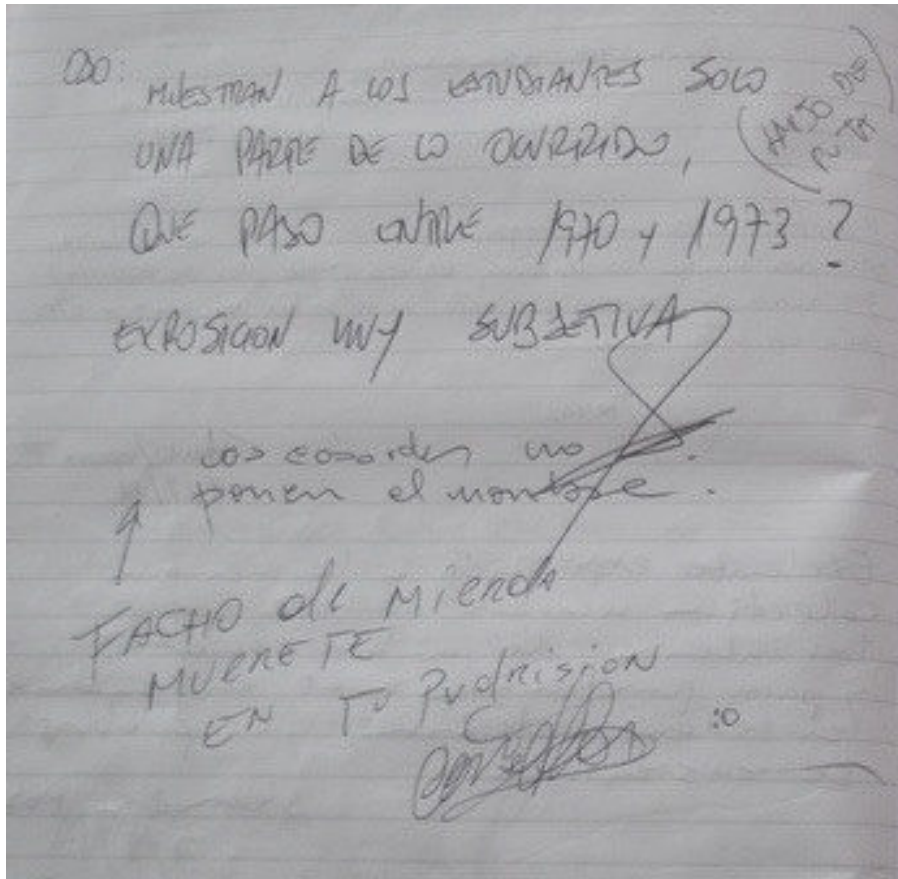 MUESTRAN A LOS ESTUDIANTES SOLO
UNA PARTE DE LO OCURRIDO,
QUE PASO ENTRE 1970 Y 1973 ?
EXPOSICION MUY SUBJETIVA
Los cobardes no
ponen el nombre.
FACHO de MIERDA
MUERETE
EN TU Pudrision
:O